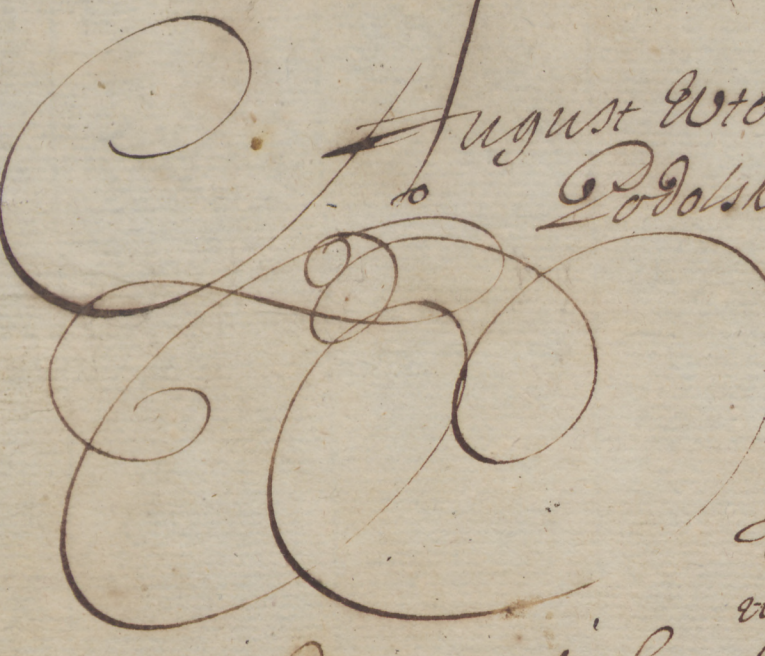 August Wto
Podolsk